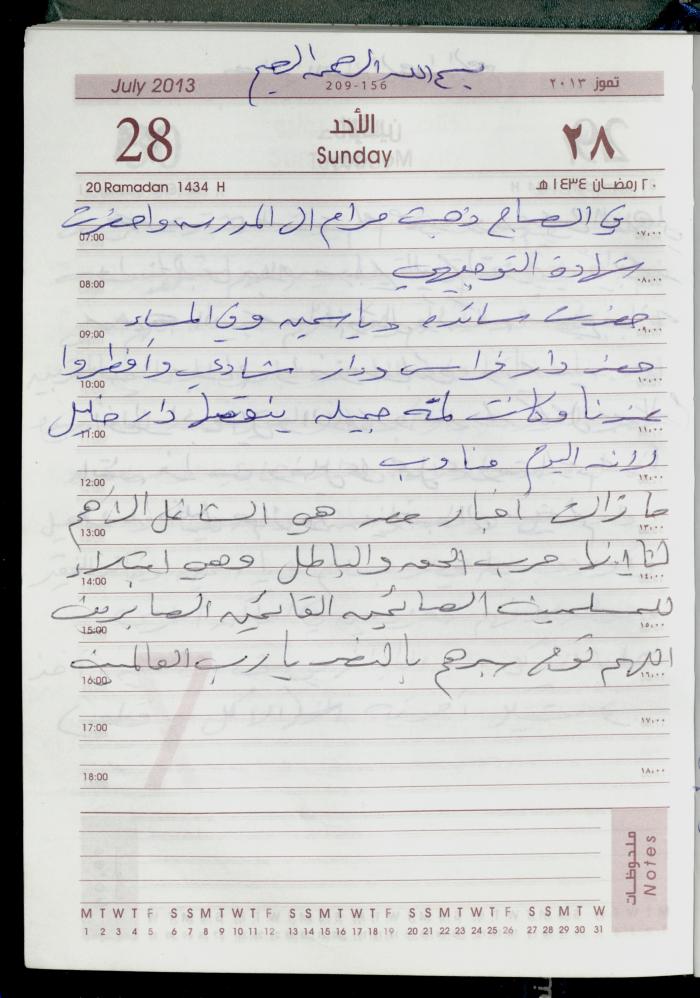 بسم الله الرحمن الرحيم
July 2013
209-156
تموز ٢٠١٣
28
الأحد
Sunday
٢٨
20 Ramadan 1434 H
٢٠ رمضان ١٤٣٤ هـ
في الصباح ذهبت مرام الى المدرسه واحضرت
07:00 ٠٧:٠٠
شهادة التوجيهي
08:00 ٠٨:٠٠
حضرت سائده وياسمين وفي المساء
09:00 ٠٩:٠٠
حضر دار فراس ودار شادي وأفطروا
10:00 ١٠:٠٠
عندنا وكانت لمة جميله ينقصها دار خليل
11:00 ١١:٠٠
لانه اليوم مناوب
12:00 ١٢:٠٠
ما زالت أخبار مصر هي الشاغل الأهم
13:00 ١٣:٠٠
لنا انها حرب الحق والباطل وهي ابتلاء
14:00 ١٤:٠٠
للمسلمين الصائمين القائمين الصابرين
15:00 ١٥:٠٠
اللهم توج صبرهم بالنصر يا رب العالمين
16:00 ١٦:٠٠
17:00 ١٧:٠٠
18:00 ١٨:٠٠
ملحوظات
Notes
M T W T F S S M T W T F S S M T W T F S S M T W T F S S M T W
1 2 3 4 5 6 7 8 9 10 11 12 13 14 15 16 17 18 19 20 21 22 23 24 25 26 27 28 29 30 31